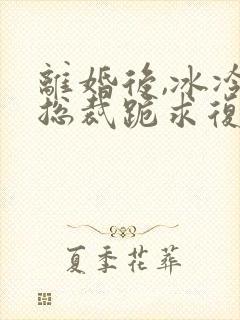 離婚後,冰冷
总裁跪求復
夏季花葬